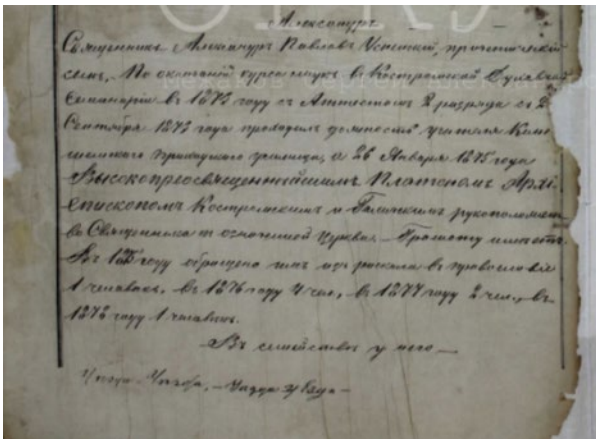 Александръ
Священникъ Александръ Павловъ Успенскій, причетническій
сынъ. По окончаніи курса наукъ в Костромской Духовной
Семинаріи въ 1873 году съ Аттестатомъ 2 разряда съ 2
Сентября 1873 года проходилъ должность учителя
приходскаго училища, а 26 Января 1875 года
Высокопреосвященнѣйшимъ Платономъ Архі-
епископомъ Костромскимъ и Галичскимъ рукоположенъ
во Священника къ означенной церкви. – Грамоту имѣетъ.
Въ году обращено имъ изъ раскола въ православіе
1 человѣкъ, въ 1876 году 4 чел., въ 1877 году 2 чел., въ
1878 году 1 человѣкъ.
– Въ семействѣ у него –